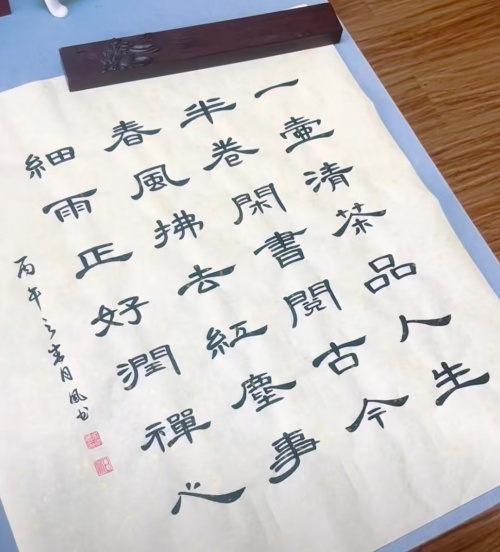 一壺清茶品人生
半卷閑書閱古今
春風拂去紅塵事
細雨正好潤禪心
丙午之春月風书